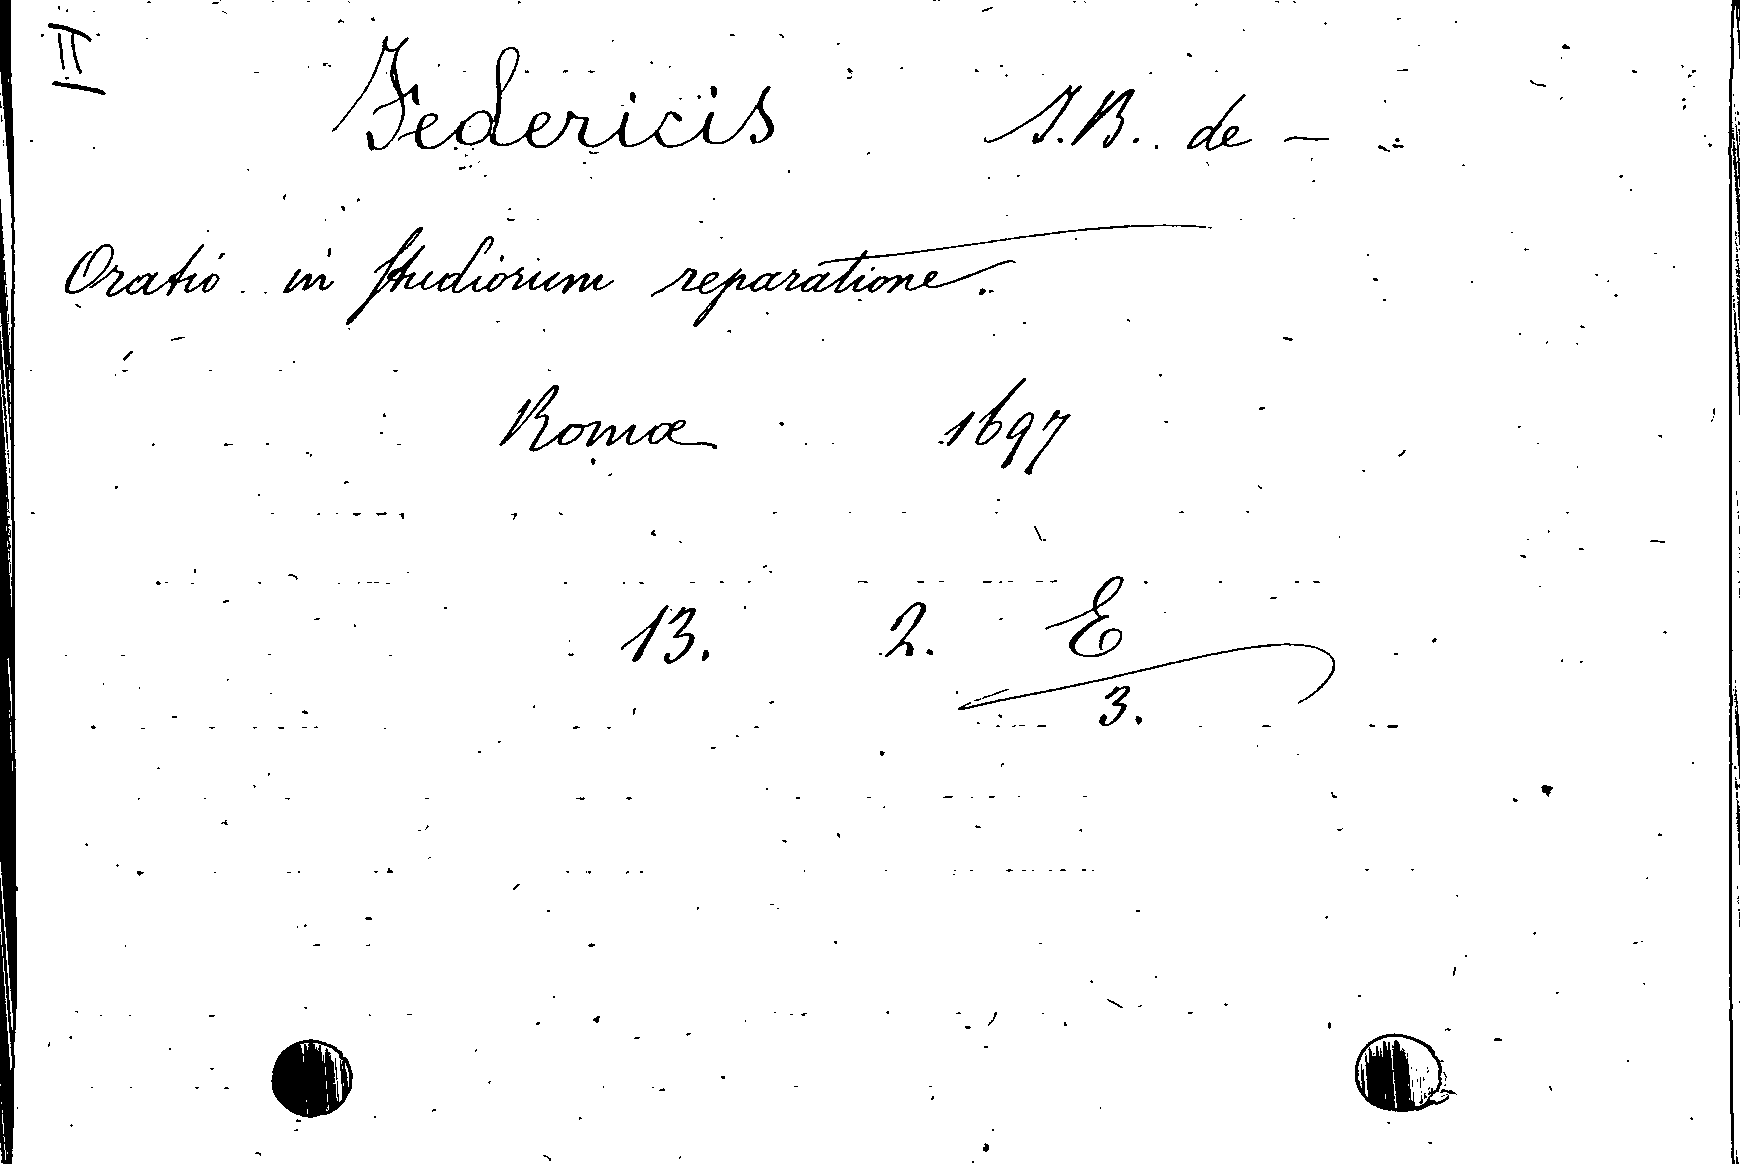 III
Federicis J.B. de –
Oratio in studiorum reparatione.
Romæ 1697
13. 2. E
3.